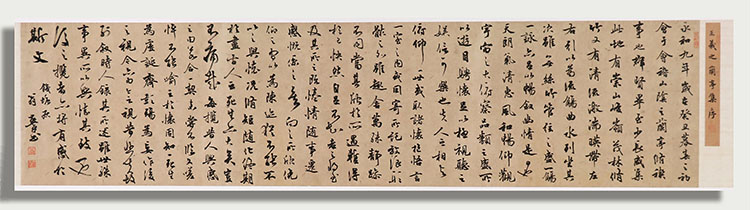 王羲之蘭亭集序
永和九年歲在癸丑暮春之初
會于會稽山陰之蘭亭脩禊
事也群賢畢至少長咸集
此地有崇山峻嶺茂林脩
竹又有清流激湍映帶左
右引以為流觴曲水列坐其
次雖無絲竹管弦之盛一觴
一詠亦足以暢叙幽情是日也
天朗氣清惠風和暢仰觀
宇宙之大俯察品類之盛所
以遊目騁懷足以極視聽之
娛信可樂也夫人之相與
俯仰一世或取諸懷抱悟言
一室之內或因寄所託放浪形
骸之外雖趣舍萬殊靜躁
不同當其欣於所遇暫得
於己快然自足不知老之將至
及其所之既惓情隨事遷
感慨係之矣向之所欣俛
仰之間以為陳迹猶不能不
以之興懷況脩短隨化終期
於盡古人云死生亦大矣豈
不痛哉每攬昔人興感
之由若合一契未嘗不臨文嗟
悼不能喻之於懷固知一死生
為虛誕齊彭殤為妄作後
之視今亦由今之視昔悲夫故
列叙時人錄其所述雖世殊
事異所以興懷其致一也
後之攬者亦將有感於
斯文